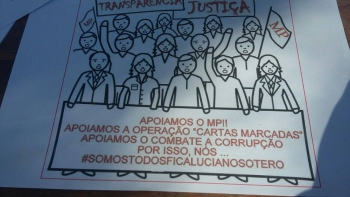 TRANSPARÊNCIA JUSTIÇA
MP
MP
APOIAMOS O MP!!
APOIAMOS A OPERAÇÃO "CARTAS MARCADAS"
APOIAMOS O COMBATE A CORRUPÇÃO
POR ISSO, NÓS ...
#SOMOSTODOSFICALUCIANOSOTERO